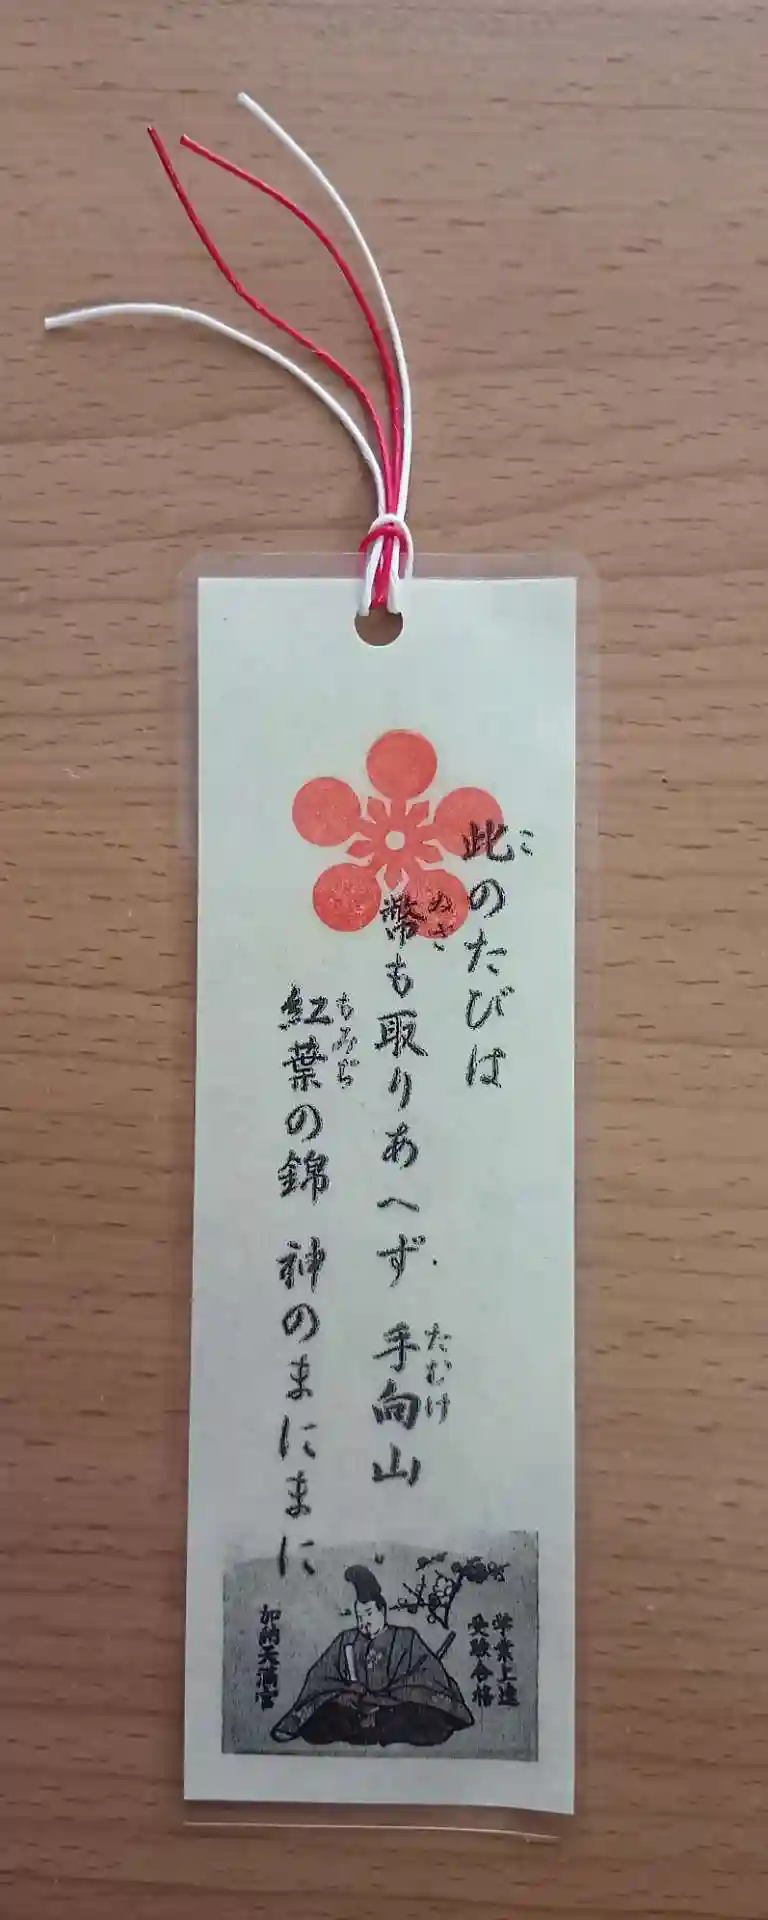 此のたびは
こ
幣も取りあへず 手向山
ぬさ
たむけ
紅葉の錦 神のまにまに
もみぢ
学業上達
受験合格
加納天満宮